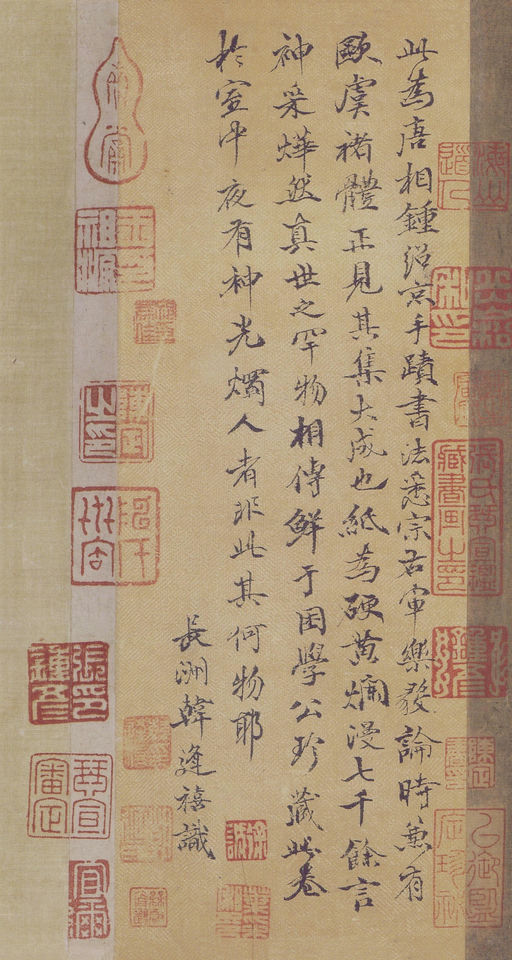 此為唐相鍾紹京手蹟書法悉宗右軍樂毅論時兼有
歐虞褚體正見其集大成也紙為硬黃爛漫七千餘言
神采燁然真世之罕物相傳鮮于困學公珍藏此卷
於室中夜有神光燭人者非此其何物耶
長洲韓逢禧識